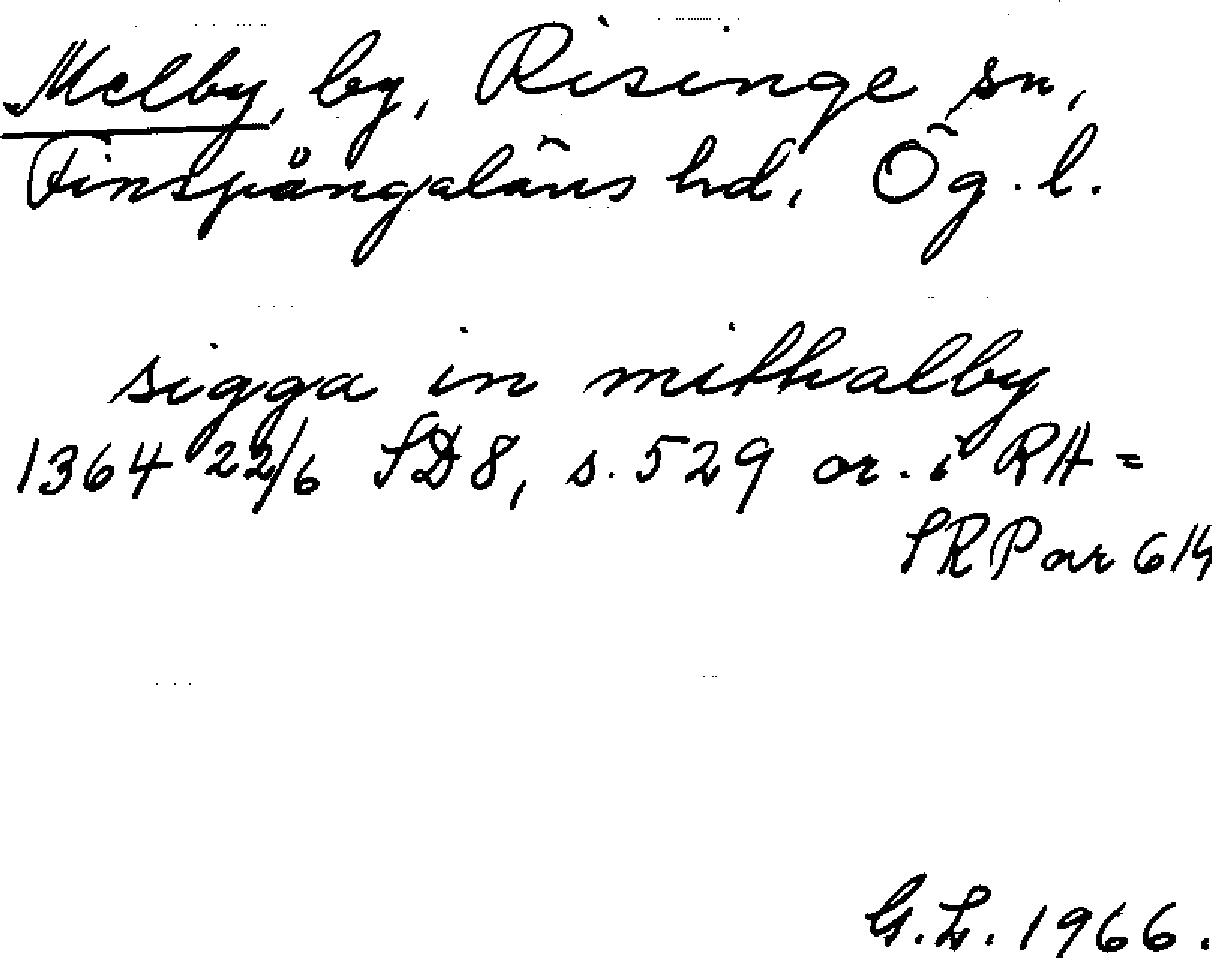 Melby, by, Risinge sn,
Finspångaläns hd, Ög. l.
sigga in mithalby
1364 22/6 SD8, s. 529 or. i RA =
SRP or 614
G.L. 1966.